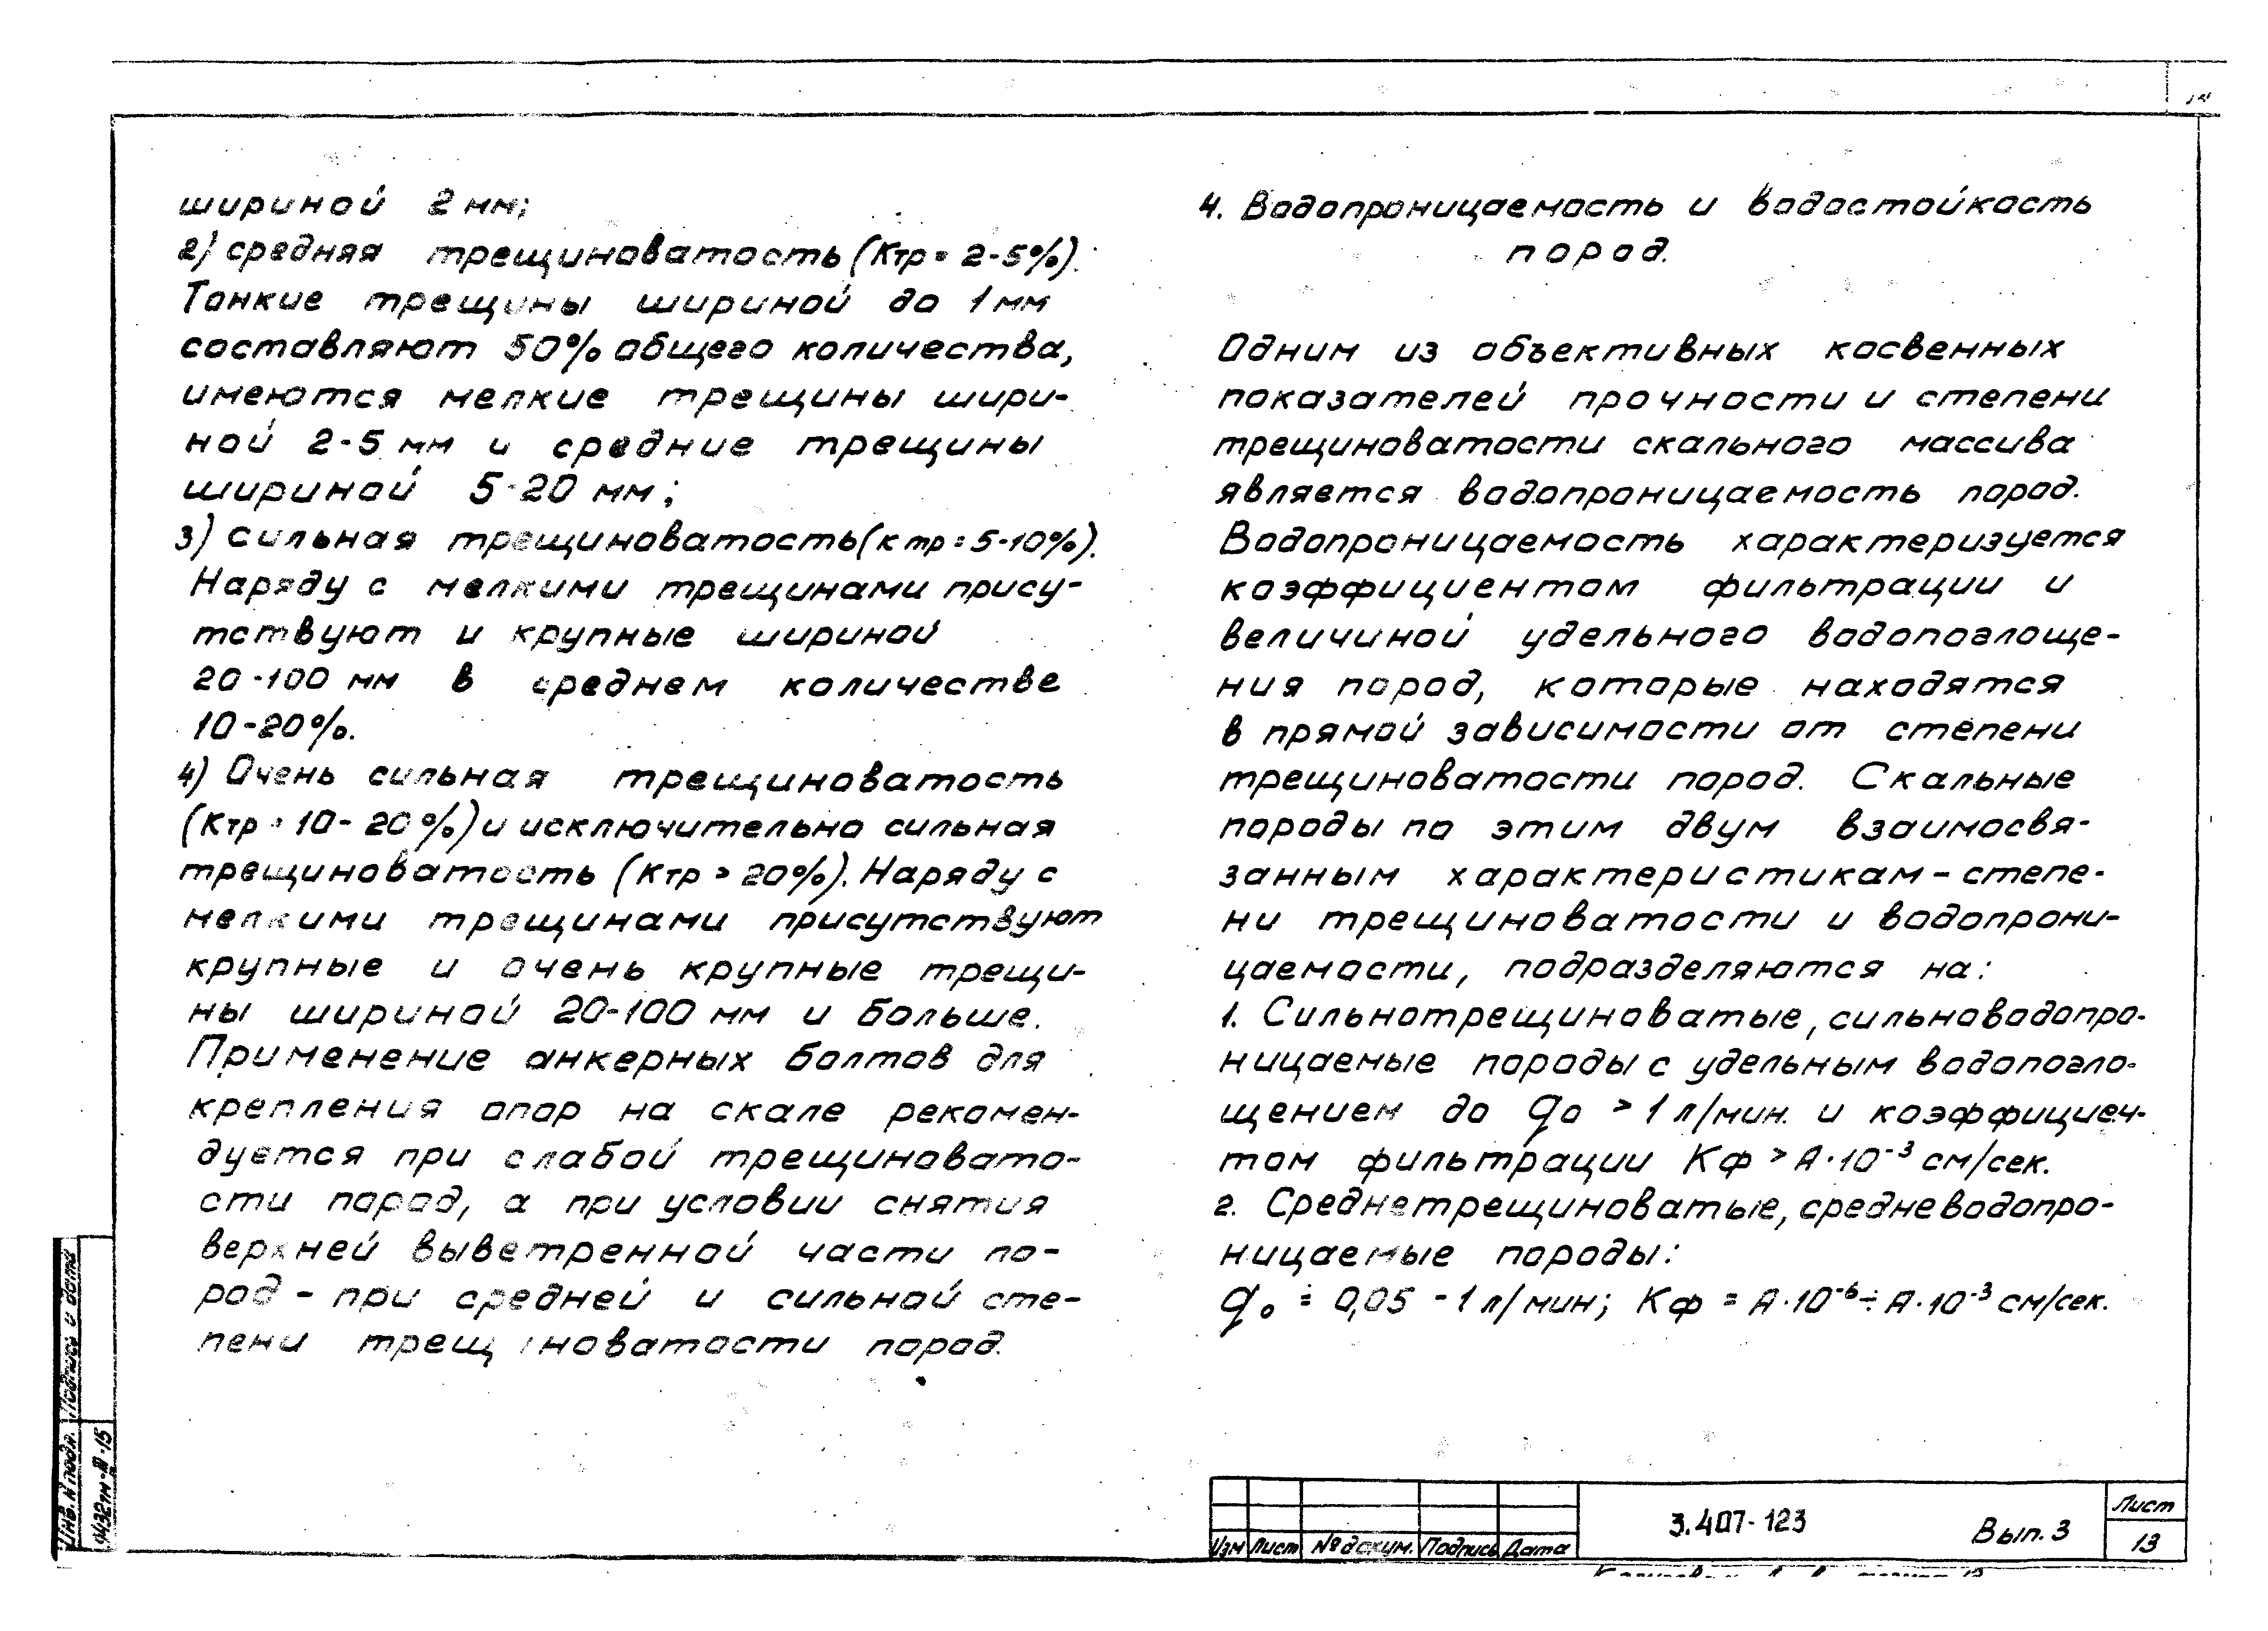 шириной 2 мм;
2) средняя трещиноватость (Kтр = 2-5%).
Тонкие трещины шириной до 1 мм
составляют 50% общего количества,
имеются мелкие трещины шири-
ной 2-5 мм и средние трещины
шириной 5-20 мм;
3) Сильная трещиноватость (Kтр = 5-10%).
Наряду с мелкими трещинами прису-
тствуют и крупные шириной
20-100 мм в среднем количестве
10-20%.
4) Очень сильная трещиноватость
(Kтр = 10-20%) и исключительно сильная
трещиноватость (Kтр > 20%). Наряду с
мелкими трещинами присутствуют
крупные и очень крупные трещи-
ны шириной 20-100 мм и больше.
Применение анкерных болтов для
крепления опор на скале рекомен-
дуется при слабой трещиновато-
сти пород, а при условии снятия
верхней выветренной части по-
род - при средней и сильной сте-
пени трещиноватости пород.
4. Водопроницаемость и водостойкость
пород.
Одним из объективных косвенных
показателей прочности и степени
трещиноватости скального массива
является водопроницаемость пород.
Водопроницаемость характеризуется
коэффициентом фильтрации и
величиной удельного водопоглоще-
ния пород, которые находятся
в прямой зависимости от степени
трещиноватости пород. Скальные
породы по этим двум взаимосвя-
занным характеристикам - степе-
ни трещиноватости и водопрони-
цаемости, подразделяются на:
1. Сильнотрещиноватые, сильноводопро-
ницаемые породы с удельным водопогло-
щением до q₀ > 1 л/мин. и коэффициен-
том фильтрации Kф > A·10⁻³ см/сек.
2. Среднетрещиноватые, средневодопро-
ницаемые породы:
q₀ = 0,05 - 1 л/мин; Kф = A·10⁻⁶ ÷ A·10⁻³ см/сек.
Подпись и дата
Инв. N подл.
9432тм-III-15
Изм Лист № докум. Подпись Дата
3.407-123 Вып. 3
Лист
13